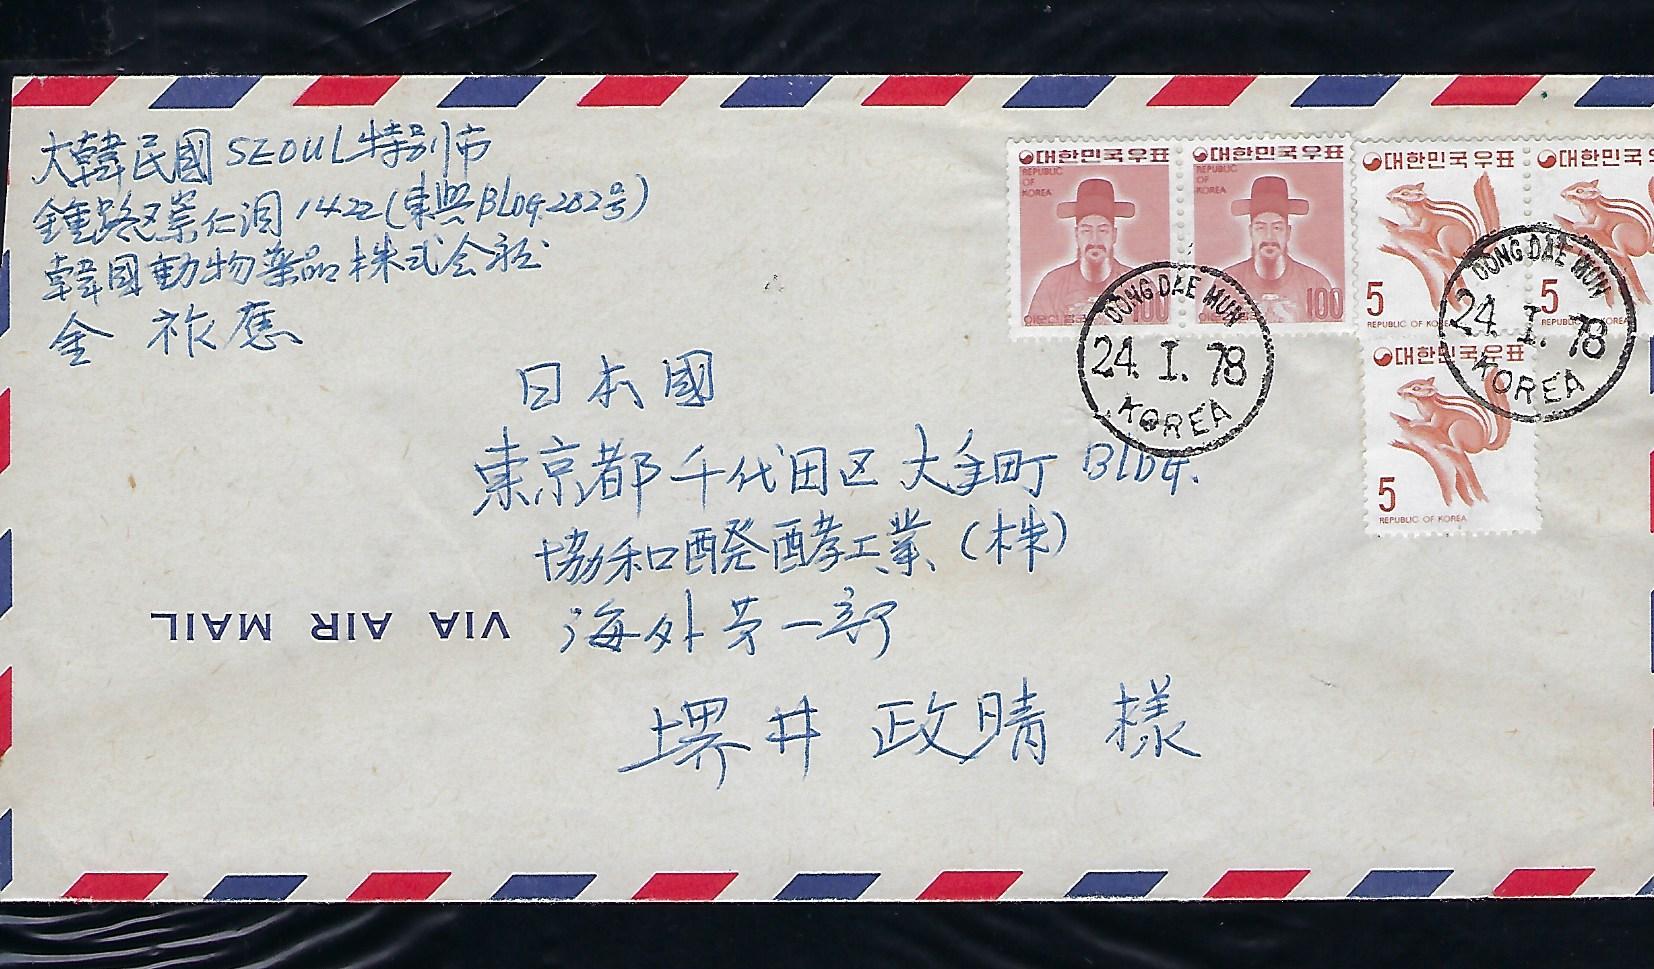 大韓民國 SEOUL 特別市
鍾路區崇仁洞 1422 (東興 BLDG. 202号)
韓國動物薬品 株式会社
金 祚應
日本國
東京都 千代田区 大手町 BLDG.
協和醗酵工業 (株)
海外 第一部
堺井 政晴 様
VIA AIR MAIL
대한민국우표
REPUBLIC
OF
KOREA
100
대한민국우표
REPUBLIC
OF
KOREA
100
대한민국우표
5
REPUBLIC OF KOREA
대한민국우표
5
REPUBLIC OF KOREA
대한민국우표
5
REPUBLIC OF KOREA
DONG DAE MUN
24. I. 78
KOREA
DONG DAE MUN
24. I. 78
KOREA